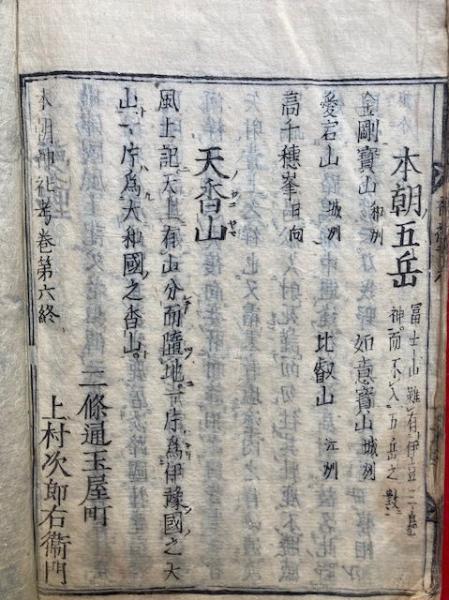 本朝五岳
富士山雖有伊豆二
神而不入五岳之數
金剛寶山 和州 如意寶山 城州
愛宕山 城州 比叡山 江州
高千穗峯 日向
天香山
風土記天上有山分而墮地一片爲伊豫國之天
山一片爲大和國之香山
三條通玉屋町
本朝神社考卷第六終 上村次郎右衞門